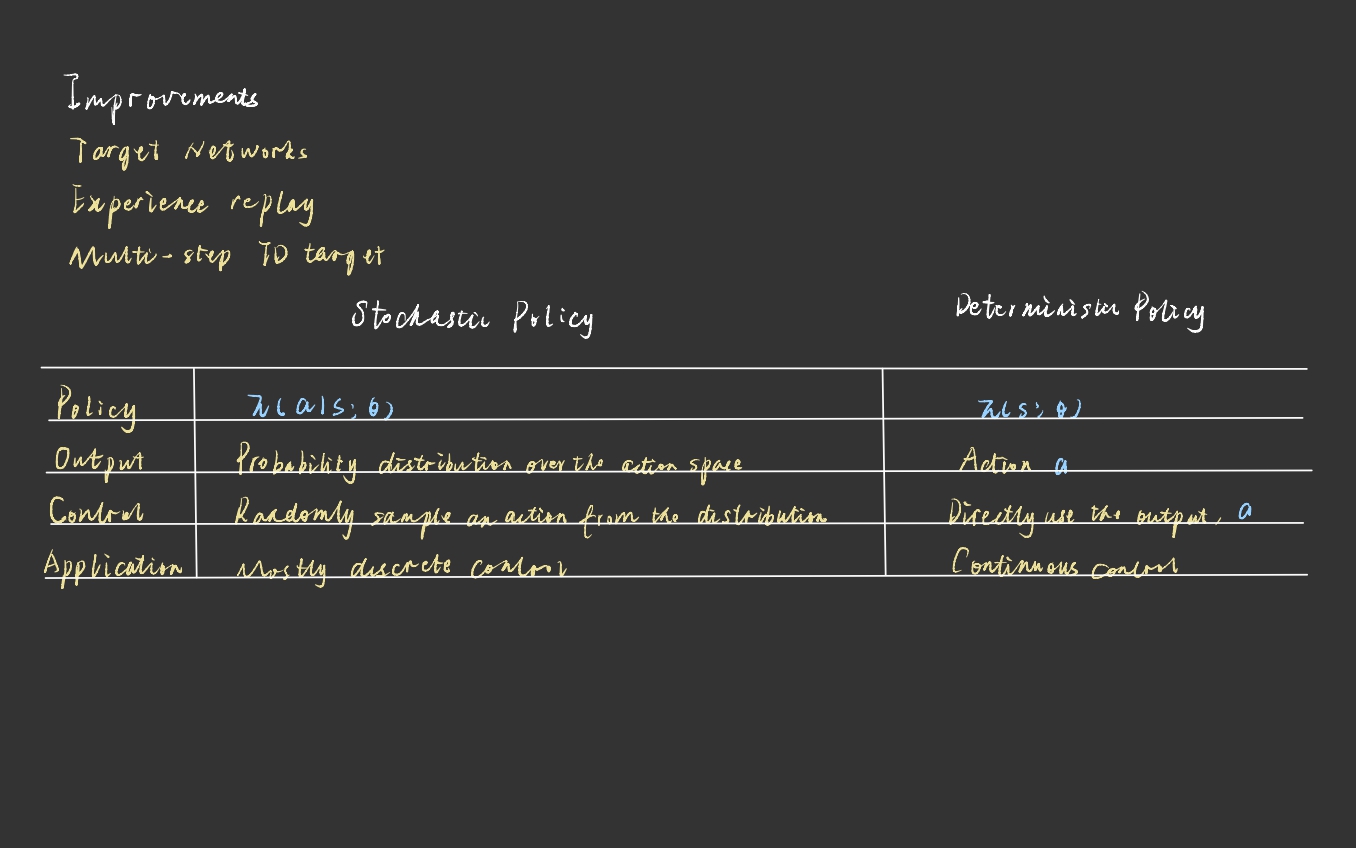 Improvements
Target Networks
Experience replay
Multi-step TD target
Stochastic Policy Deterministic Policy
Policy π(a|s; θ) π(s; θ)
Output Probability distribution over the action space Action a
Control Randomly sample an action from the distribution Directly use the output, a
Application Mostly discrete control Continuous control